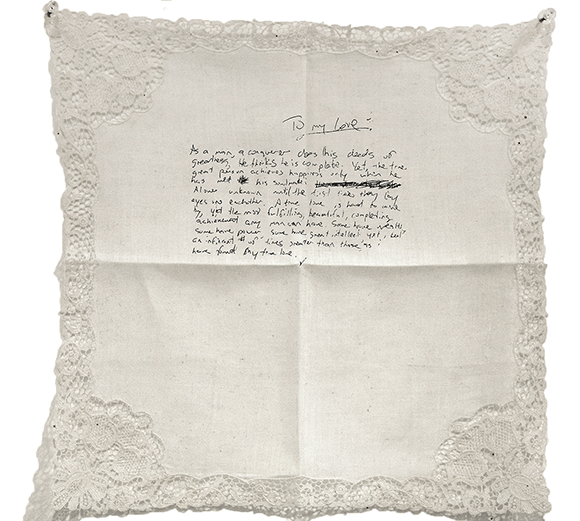 To my love
As a man, a conquerer does his deeds of
greatness, he thinks he is complete. Yet, the true
great person achieves happiness only when he
has met his soulmate.
A lover unknown until the first time they lay
eyes on eachother. A true love is hard to come
by, yet the most fulfilling, beautiful, completing
achievement any man can have. Some have wealth
Some have power some have great intellect yet, I
an infinant # of times greater than those as I
have found my true love.